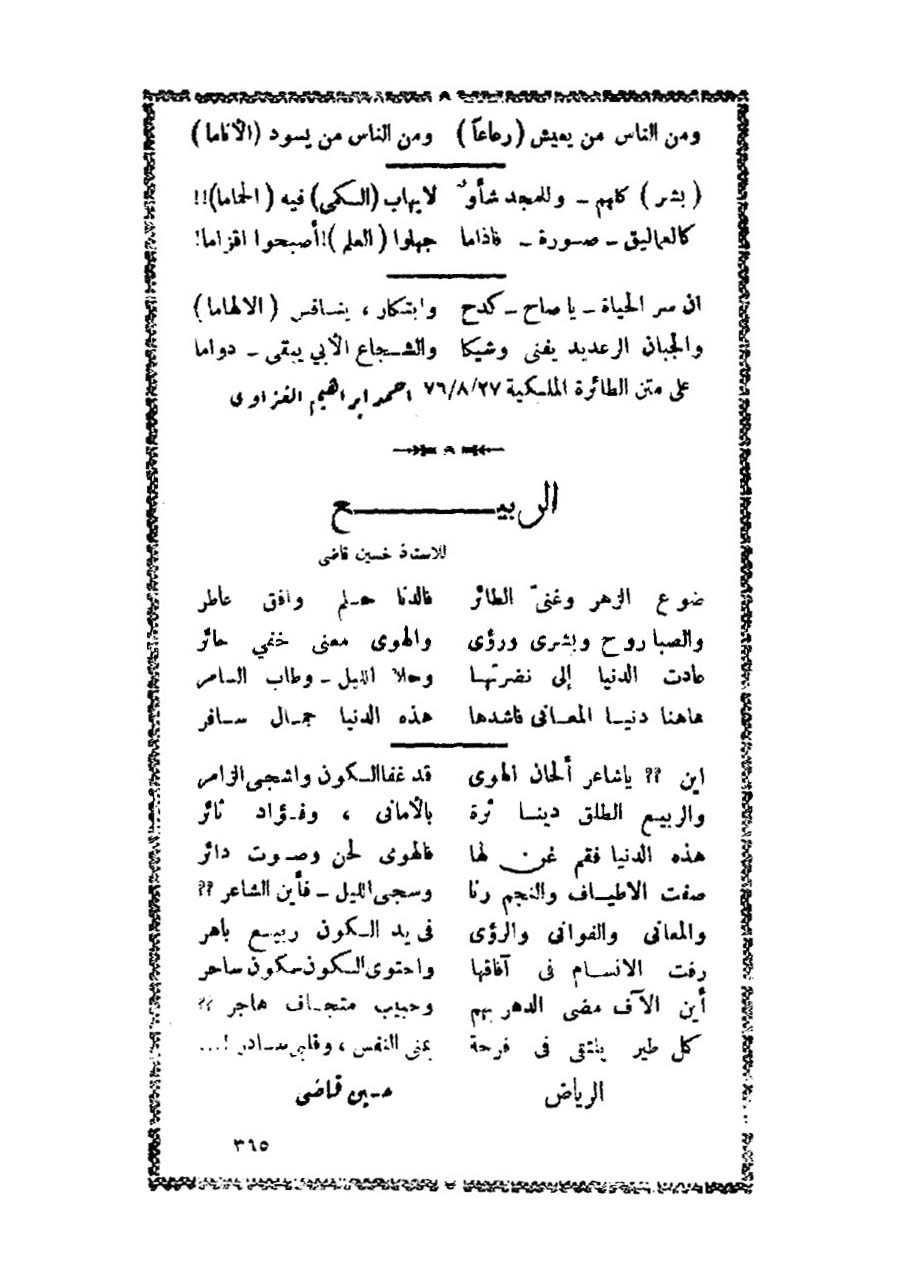 ومن الناس من يعيش (رعاعاً) ومن الناس من يسود (الأناما)
(بشر) كلهم - وللمجد شأوٌ لا يهاب (الكمى) فيه (الحماما)!!
كالعماليق - صورة - فاذاما جهلوا (العلم)! أصبحوا اقزاما!
ان سر الحياة - يا صاح - كدح وابتكار، ينافس (الالهاما)
والجبان الرعديد يفنى وشيكا والشجاع الأبي يبقى - دواما
على متن الطائرة الملكية ٧٦/٨/٢٧ احمد ابراهيم الغزاوى
الربيع
للاستاذ حسين قاضى
ضوع الزهر وغنىّ الطائر فالدنا حلم وافق عاطر
والصبا روح وبشرى ورؤى والهوى معنى خفي حائر
عادت الدنيا إلى نضرتها وحلا الليل - وطاب السامر
هاهنا دنيا المعانى فاشدها هذه الدنيا جمال سافر
اين ؟؟ ياشاعر ألحان الهوى قد غفا الكون واشجى الزامر
والربيع الطلق دينا ثرة بالأمانى ، وفؤاد ثائر
هذه الدنيا فقم غن لها فالهوى لحن وصوت دائر
صفت الاطياف والنجم رنا وسجى الليل - فأين الشاعر ؟؟
والمعانى والغوانى والرؤى فى يد الكون ربيع باهر
رفت الانسام فى آفاقها واحتوى السكون سكون ساحر
أين الآف مضى الدهر بهم وحبيب متجاف هاجر ؟؟
كل طير يلتقى فى فرحة بمنى النفس ، وقلبى سادر !...
الرياض حسين قاضى
٣٦٥